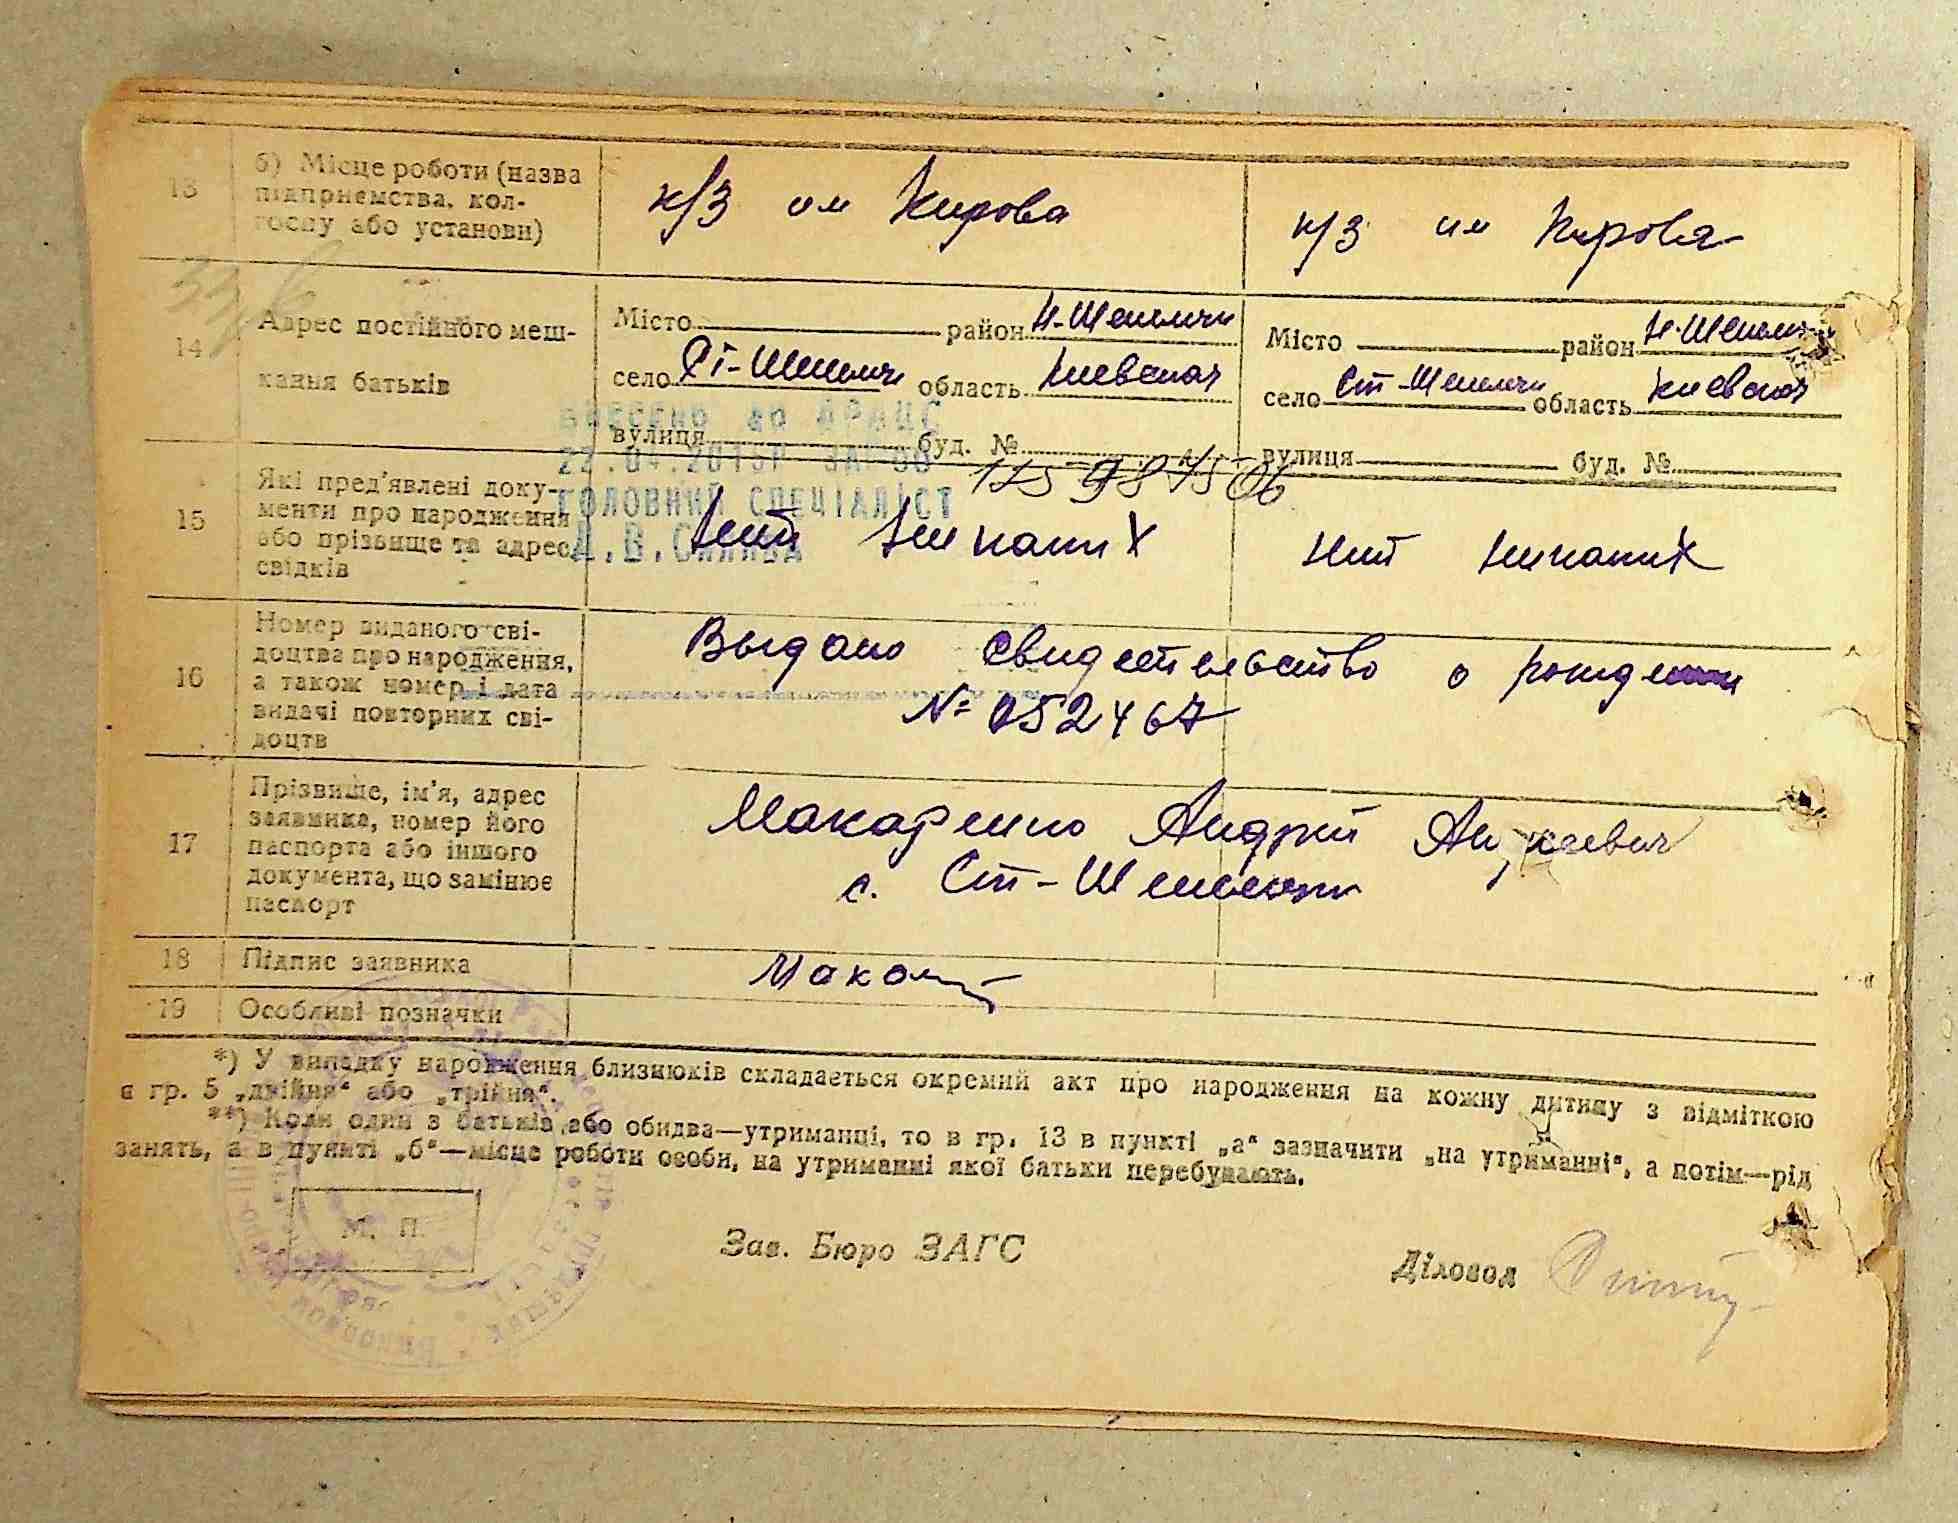 13 б) Місце роботи (назва
підприємства, кол-
госпу або установи)
к/з им Кирова
к/з им Кирова
14 Адрес постійного меш-
кання батьків
Місто район Н-Шепеличи
село Ст-Шепеличи область Киевская
вулиця буд. №
Місто район Н-Шепеличи
село Ст-Шепеличи область Киевская
вулиця буд. №
ВНЕСЕНО до ДРАЦС
ГОЛОВНИЙ СПЕЦІАЛІСТ
15 Які пред'явлені доку-
менти про народження
або прізвище та адрес
свідків
нит никаких
нит никаких
16 Номер виданого сві-
доцтва про народження,
а також номер і дата
видачі повторних сві-
доцтв
Выдано свидетельство о рождении
№ 052467
17 Прізвище, ім'я, адрес
заявника, номер його
паспорта або іншого
документа, що замінює
паспорт
Макаренко Андрій
с. Ст-Шепеличи
18 Підпис заявника
19 Особливі позначки
*) У випадку народження близнюків складається окремий акт про народження на кожну дитину з відміткою
в гр. 5 „двійня“ або „трійня“.
**) Коли один з батьків або обидва—утриманці, то в гр. 13 в пункті „а“ зазначити „на утриманні“, а потім—рід
занять, а в пункті „б“—місце роботи особи, на утриманні якої батьки перебувають.
М. П.
Зав. Бюро ЗАГС
Діловод